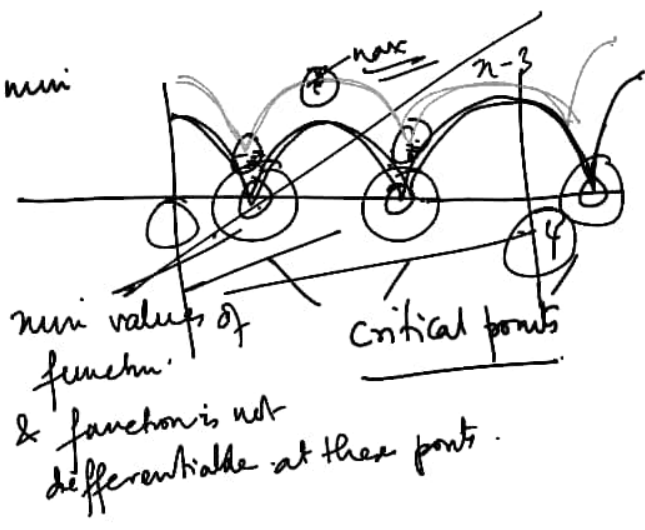 mini
max
x-3
4
mini values of
functn.
critical points
& function is not
differentiable at these points.